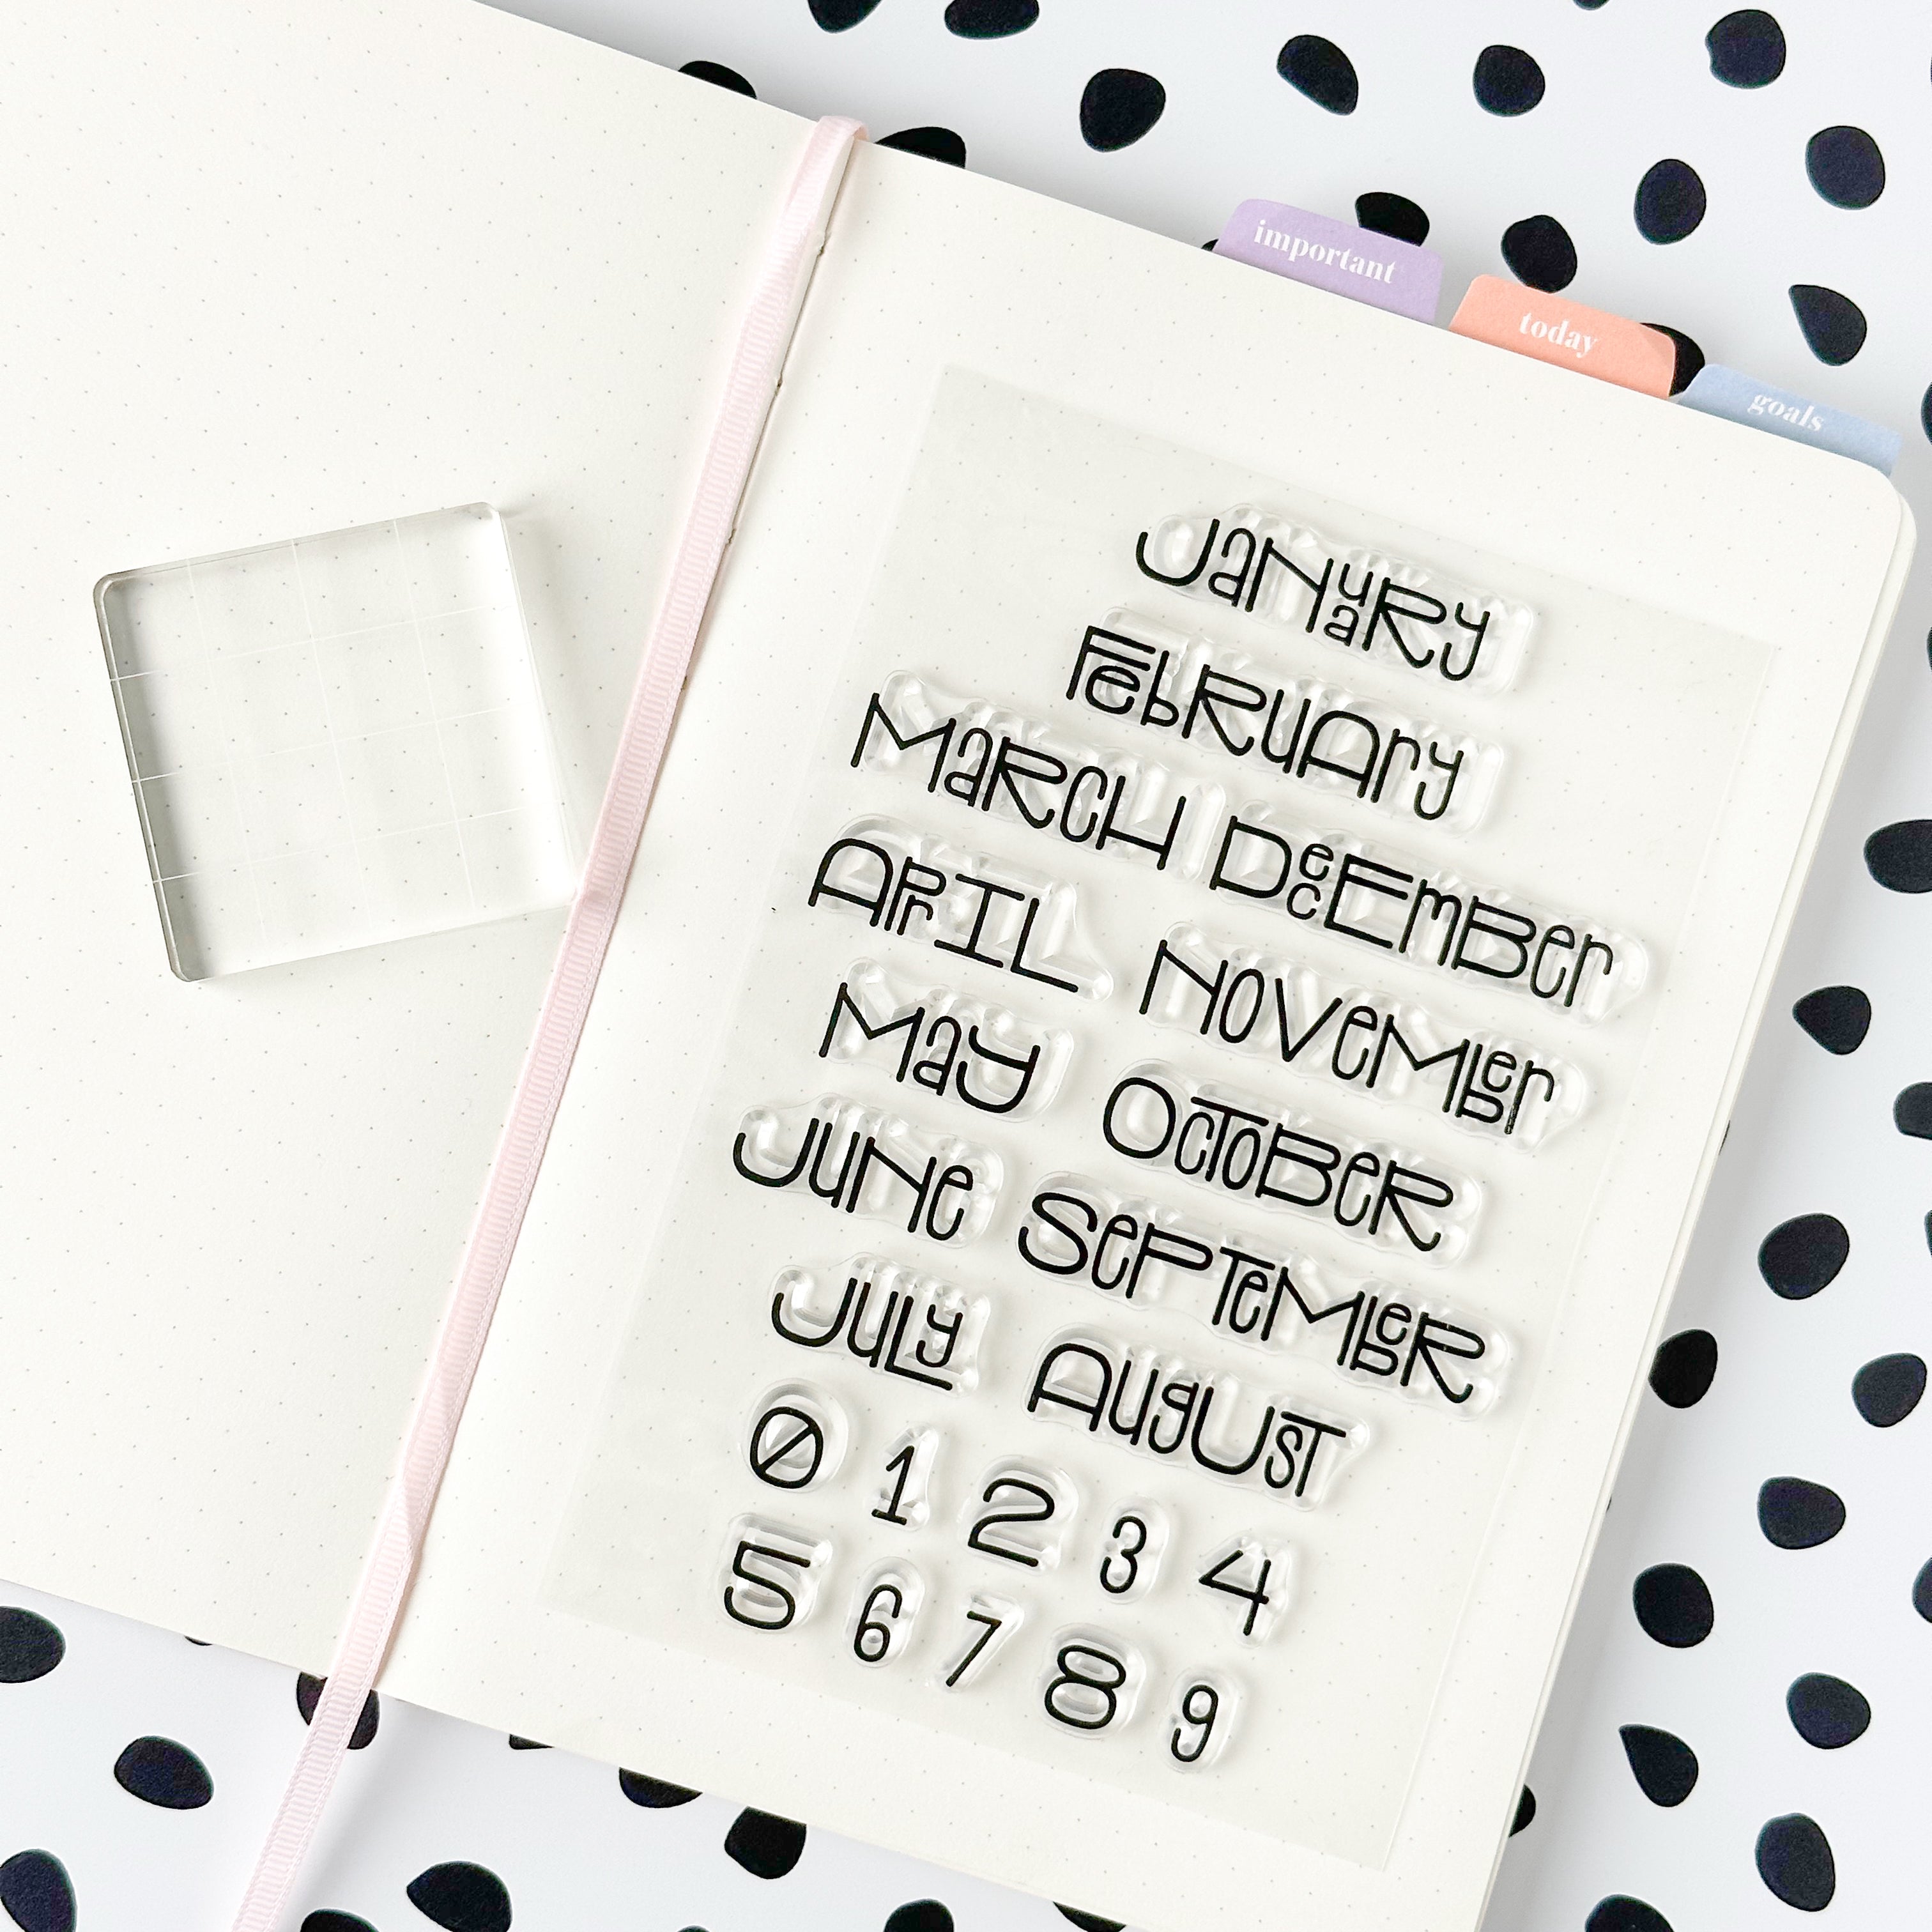 important
today
goals
JaNuaRy
FebRUAry
MaRcH DecEmBer
APrIL NoVeMber
May OcToBeR
JuNe SePTeMbeR
JuLy AugUsT
0 1 2 3 4
5 6 7 8 9